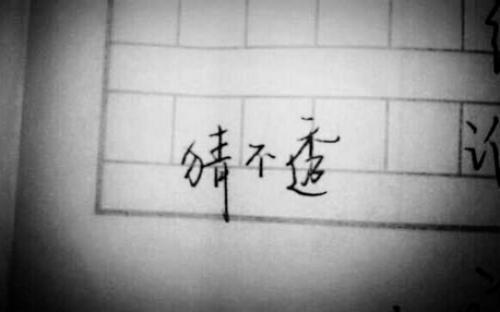 猜不透